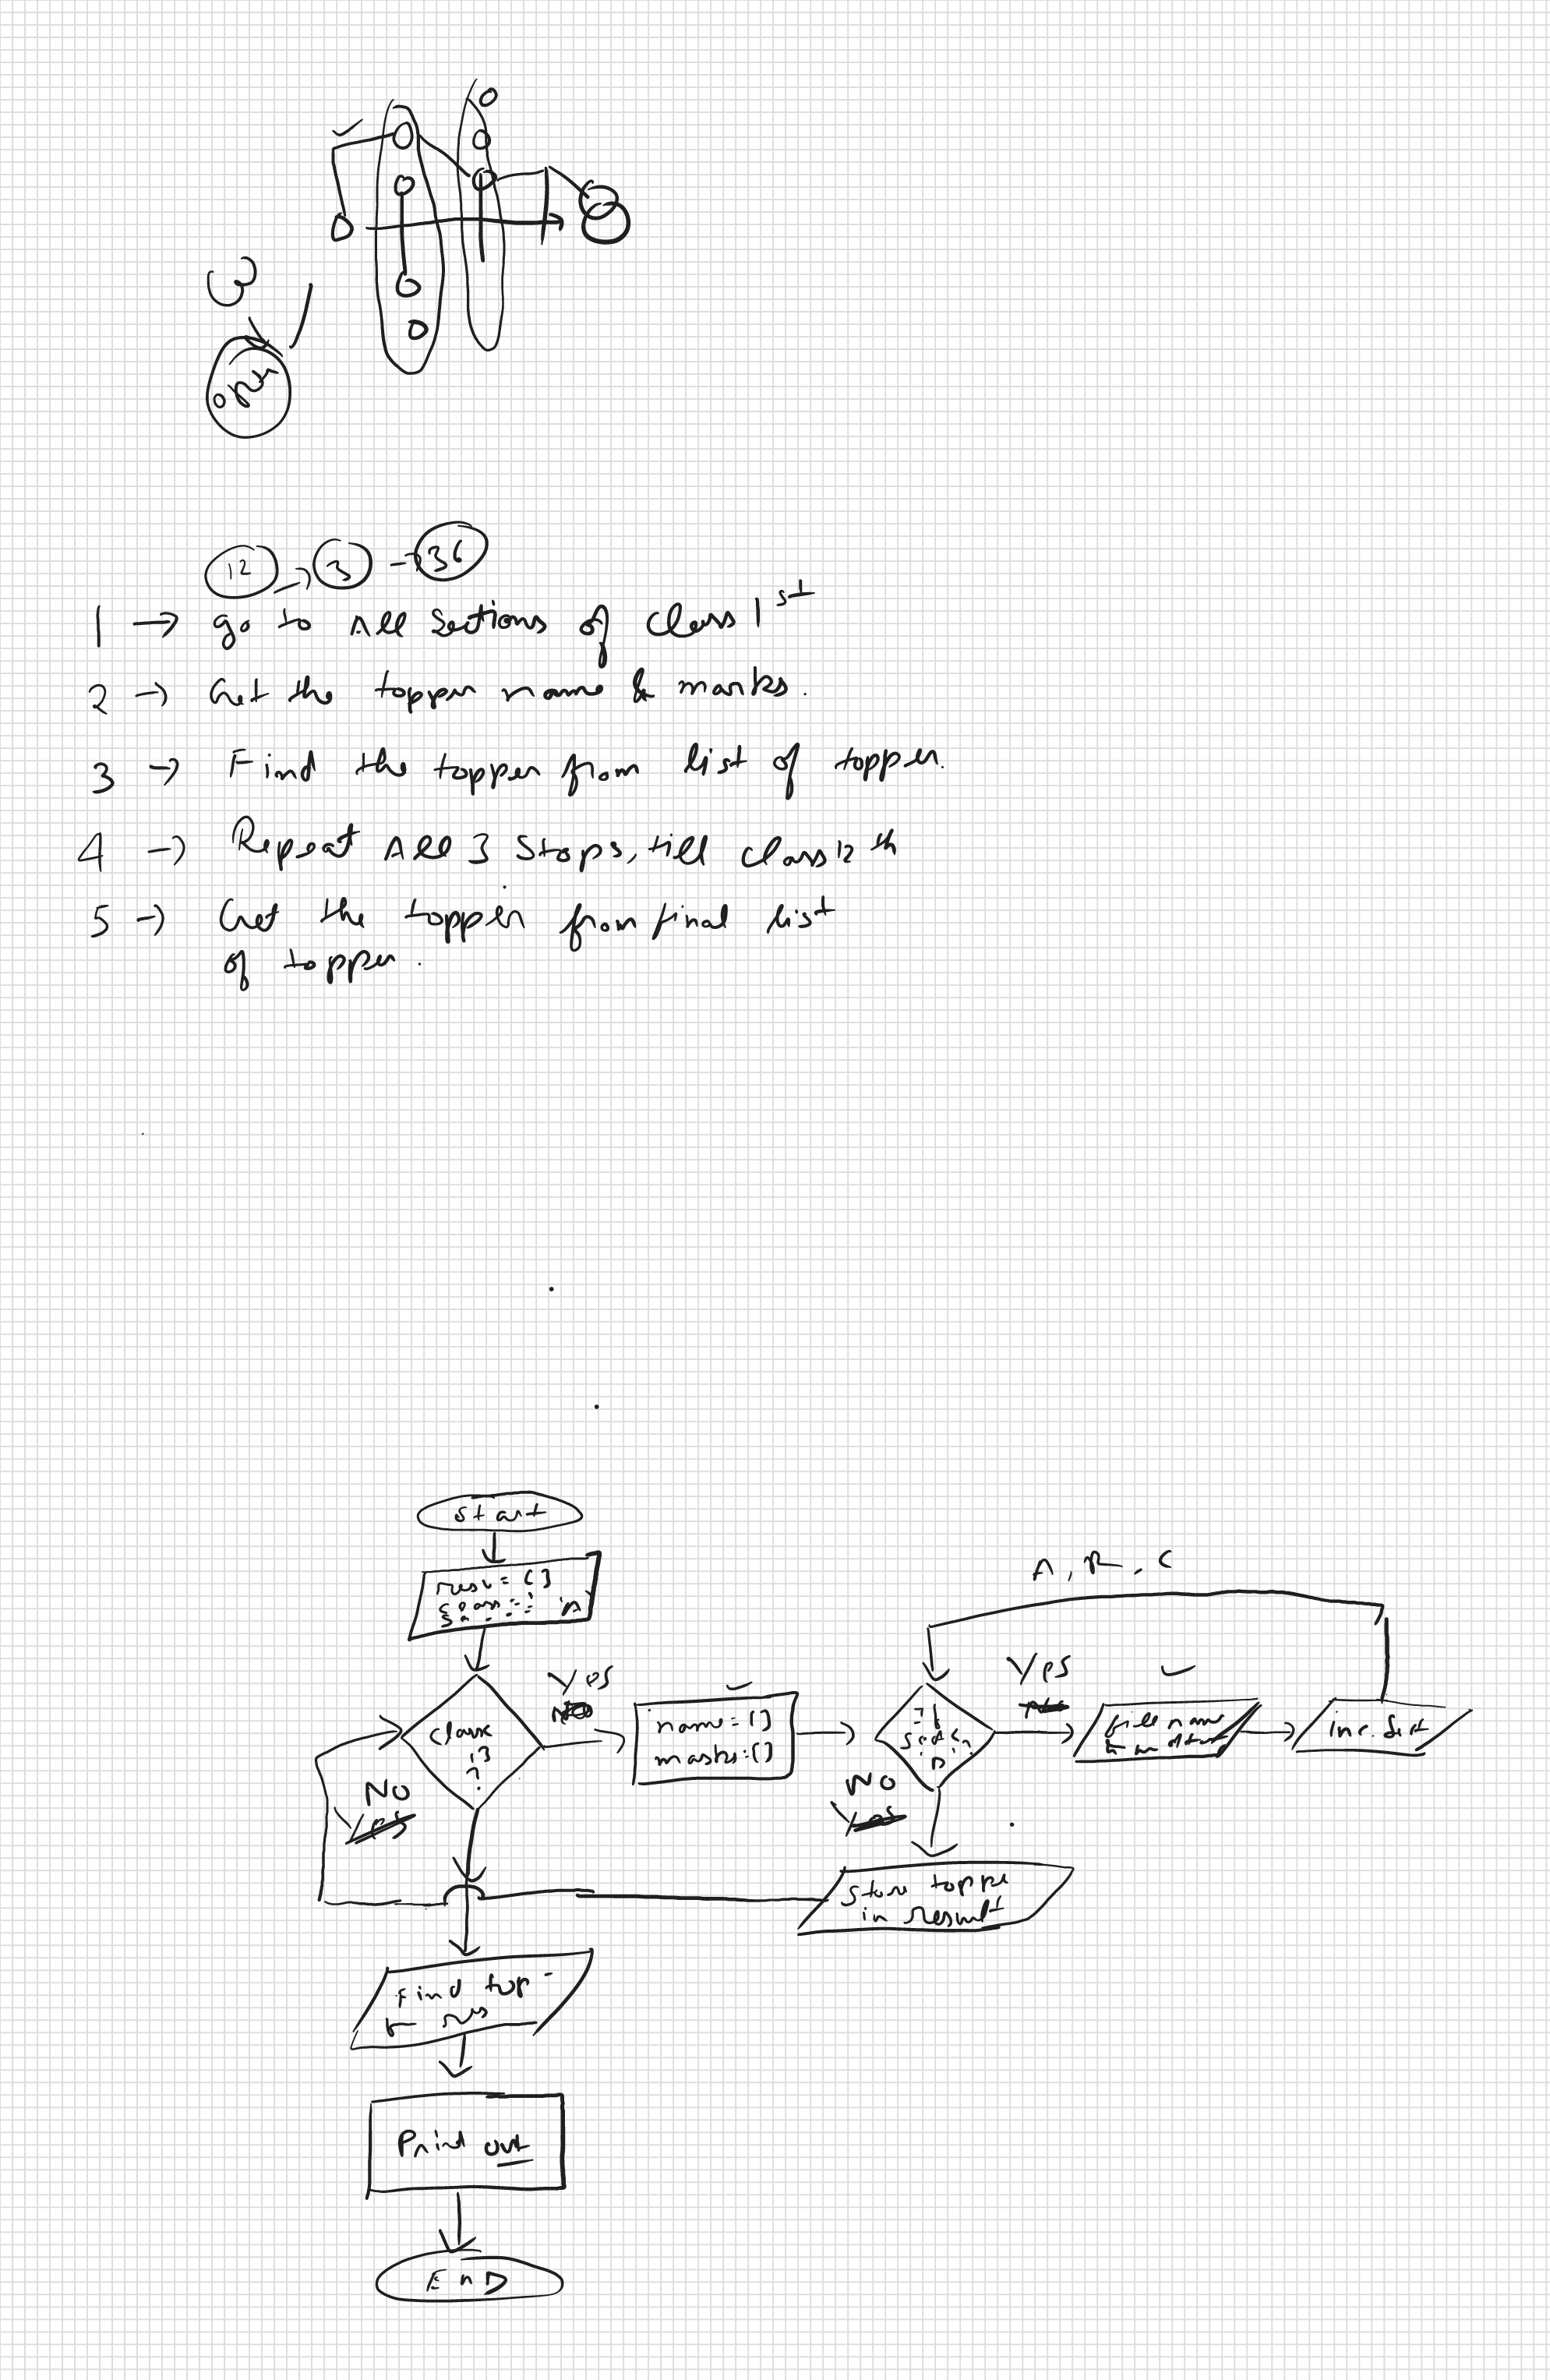 12 → 3 → 36
1 → go to All Sections of class 1st
2 → Get the topper name & marks.
3 → Find the topper from list of topper.
4 → Repeat All 3 Steps, till class 12th
5 → Get the topper from final list
of topper.
Start
res = []
class = 1
'A'
A, B, C
Yes
Yes
class
13
?
name = []
marks = []
if
Sect <
D
?
fill name
inc. Sect
No
Yes
No
Yes
Store toppe
in result
Find top
res
Print out
End